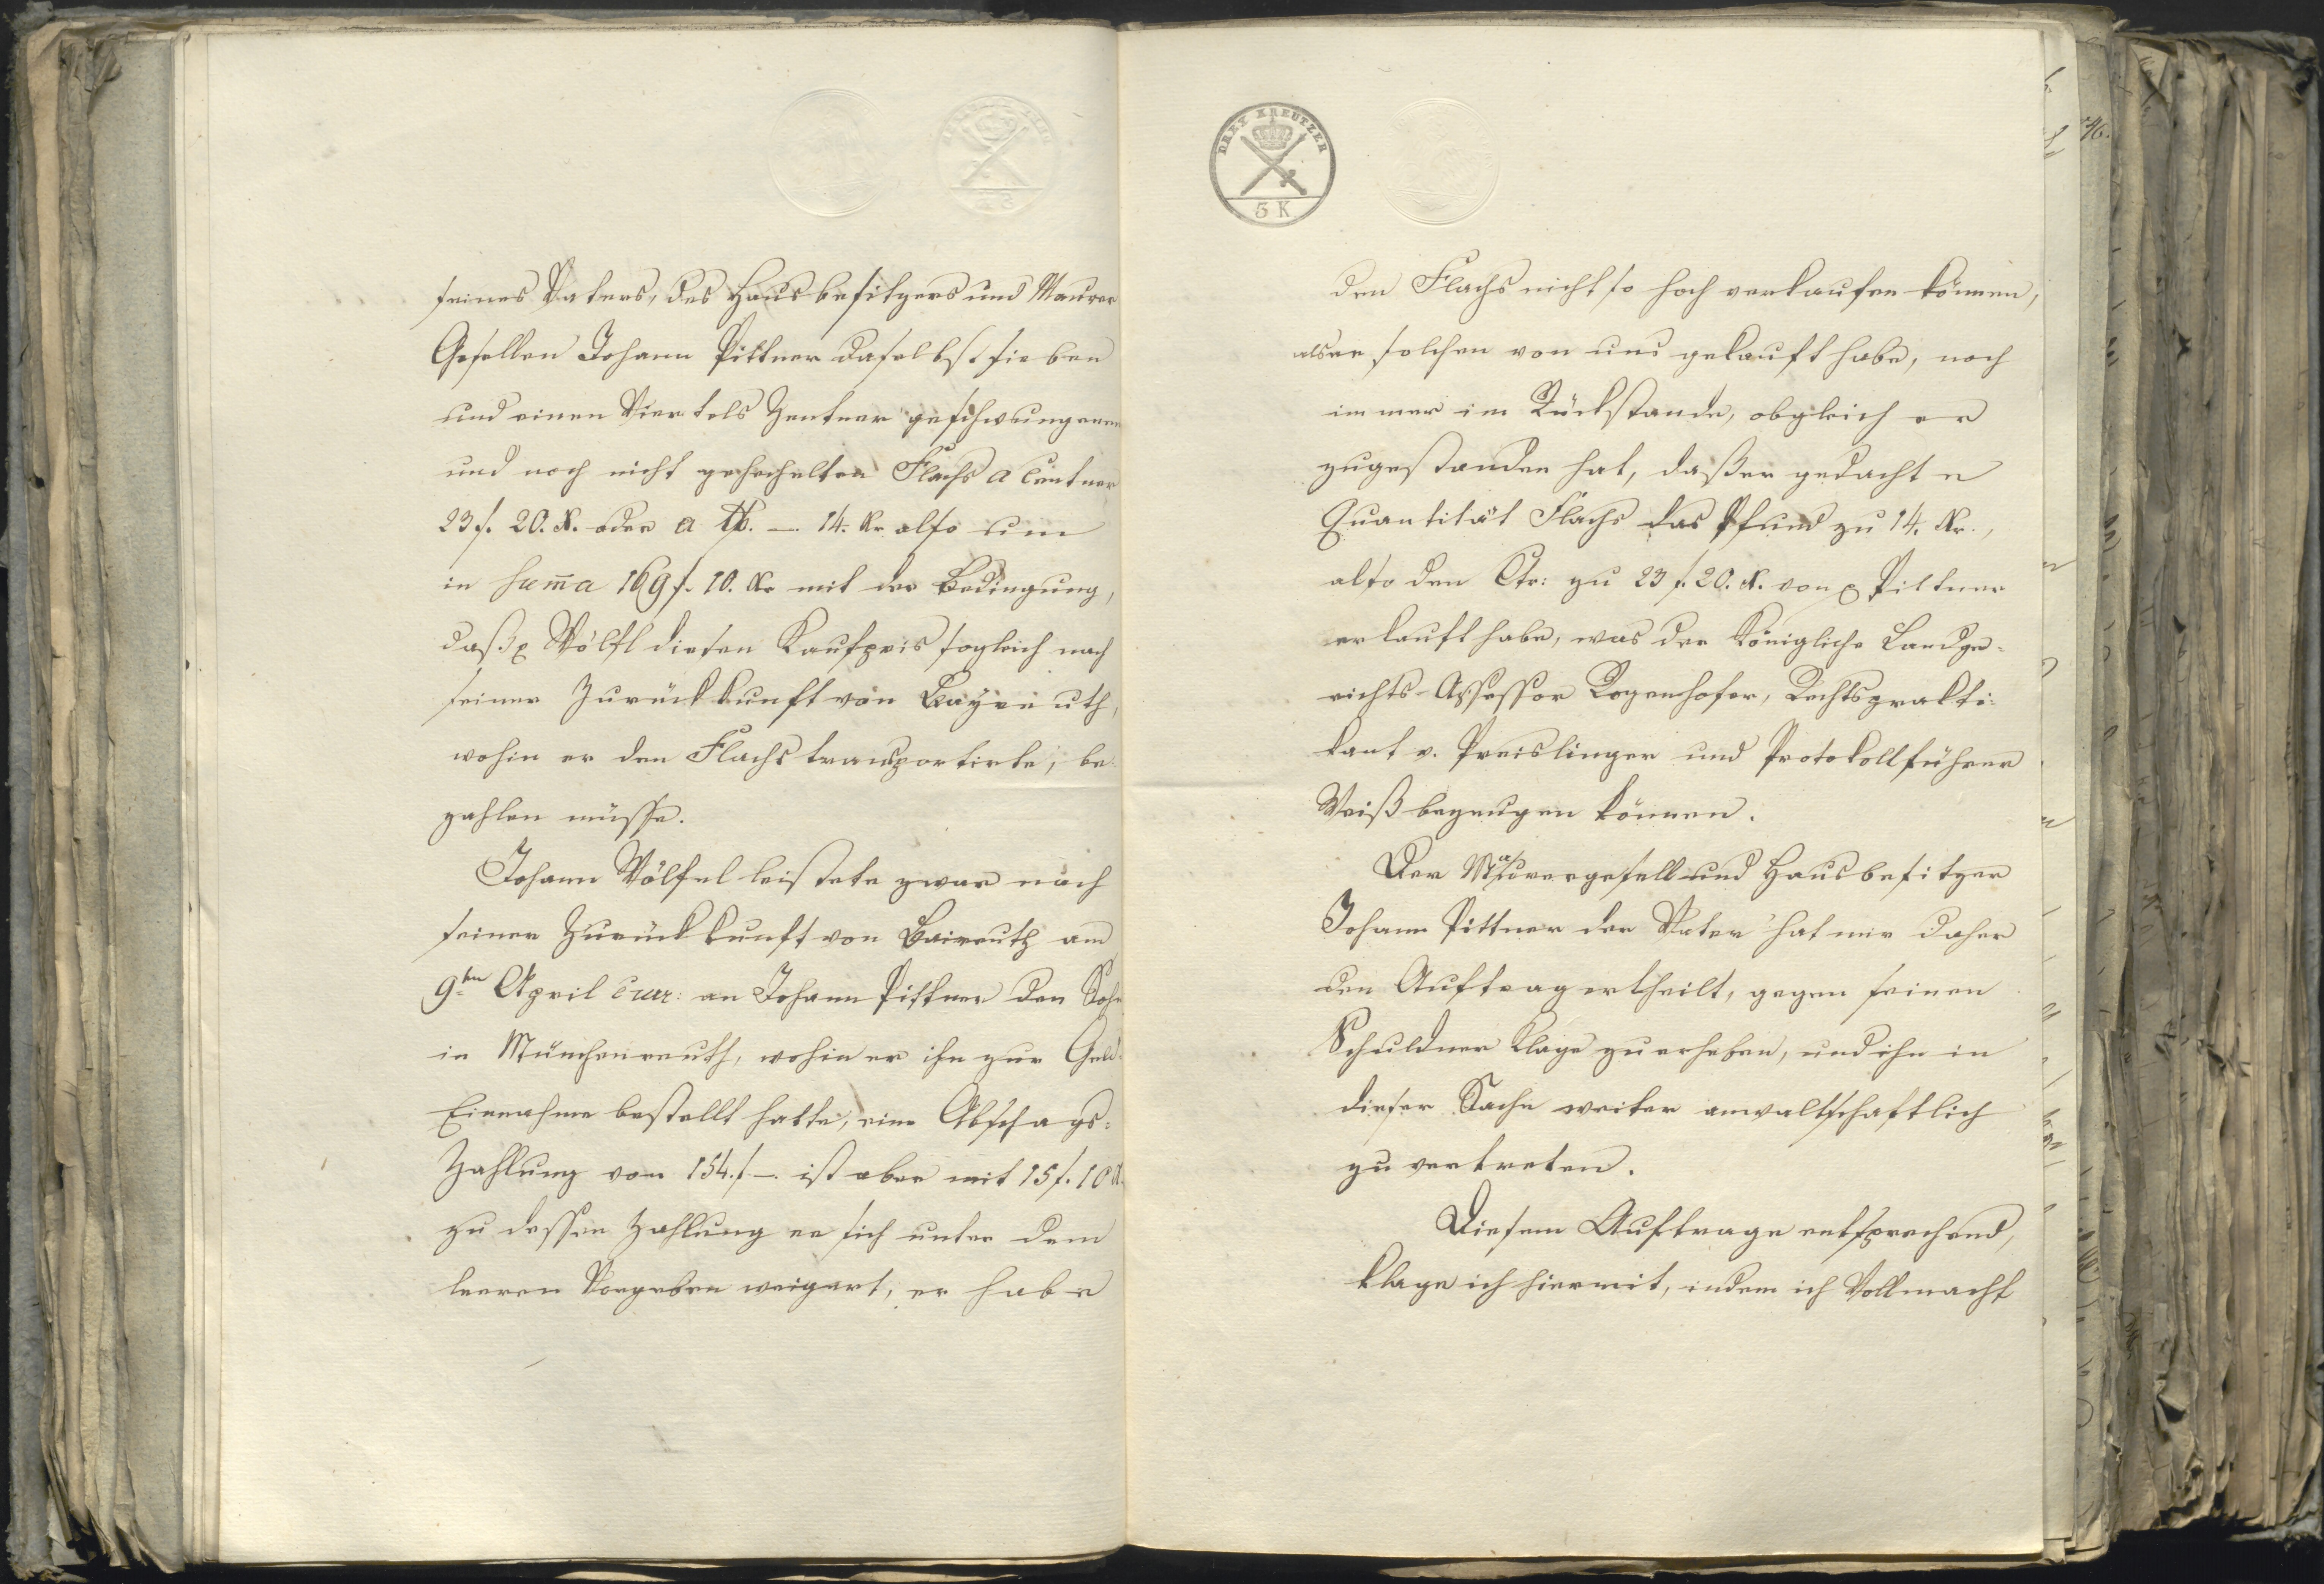 seines Vaters, des Hausbesitzers und Maurer
Gesellen Johann Pittner daselbst sieben
und einen Viertels Zentner geschwungenen
und noch nicht gehechelten Flachs a Centner
23 f. 20. X. oder a ℔. — 14. Kr also um
in Suma 169 f. 10. Kr mit der Bedingung,
daß Wölfl diesen Kaufpreis sogleich nach
seiner Zurückkunft von Bayreuth,
wohin er den Flachs transportirte, be-
zahlen müsse.
Johann Wölfel leistete zwar nach
seiner Zurückkunft von Baireuth am
9ten April curr: an Johann Pittner den Sohn
in Münchenreuth, wohin er ihn zur Geld-
Einnahme bestellt hatte, eine Abschags-
Zahlung von 154. f —. ist aber mit 15 f. 10 X.
zu dessen Zahlung er sich unter dem
leeren Vorgeben weigert, er habe
DREY KREUTZER
3 K
den Flachs nicht so hoch verkaufen können,
als er solchen von uns gekauft habe, noch
immer im Rückstande, obgleich er
zugestanden hat, daß er gedachte
Quantität Flachs das Pfund zu 14. Kr.,
also den Ctr: zu 23 f. 20. X. von Pittner
erkauft habe, was der Königliche Landge-
richts-Assessor Regenhofer, Rechtsprakti-
kant v. Preislinger und Protokollführer
Weiß bezeugen können.
Der Maurergesell und Hausbesitzer
Johann Pittner der Vater hat mir daher
den Auftrag ertheilt, gegen seinen
Schuldner Klage zu erheben, und ihn in
dieser Sache weiter anwaltschaftlich
zu vertreten.
Diesem Auftrage entsprechend,
klage ich hiermit, indem ich Vollmacht